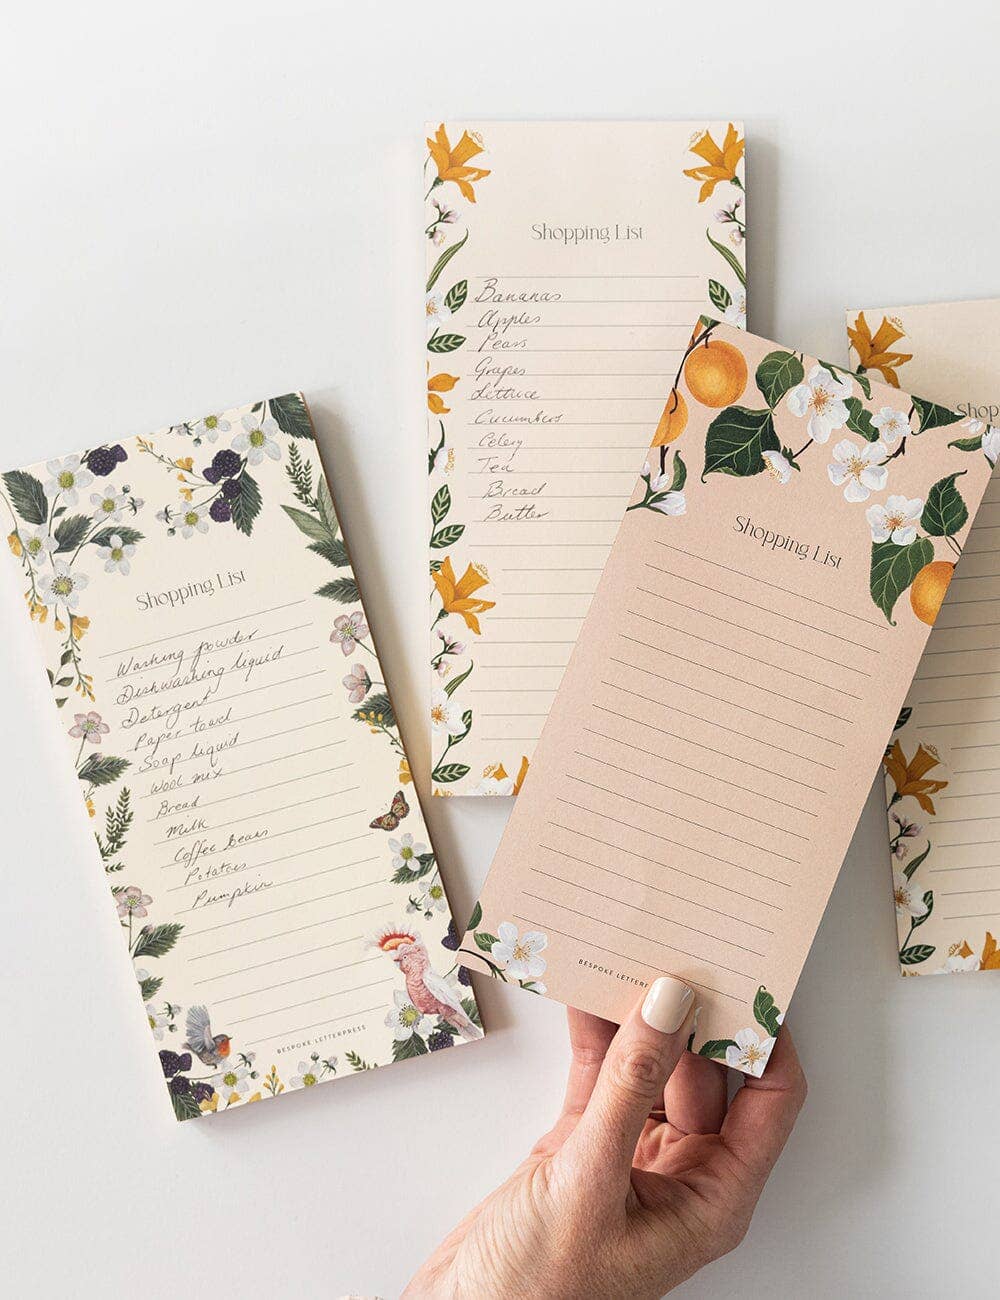 Shopping List
Bananas
Apples
Pears
Grapes
Lettuce
Cucumbers
Celery
Tea
Bread
Butter
Shopping List
Washing powder
Dishwashing liquid
Detergent
Paper towel
Soap liquid
Wool mix
Bread
Milk
Coffee Beans
Potatoes
Pumpkin
BESPOKE LETTERPRESS
Shopping List
BESPOKE LETTERP
Shop